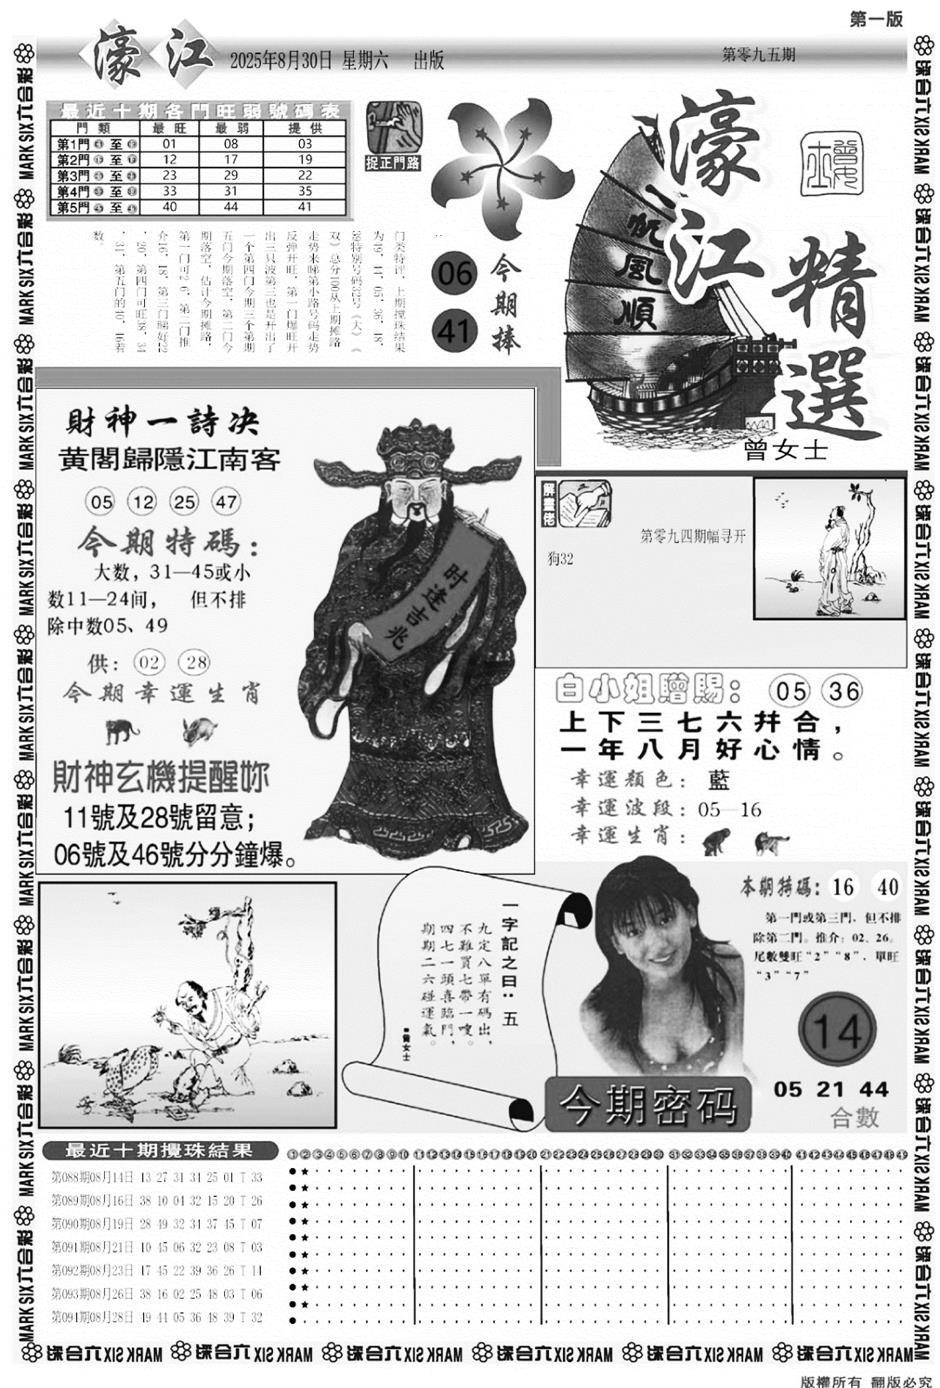 第一版
濠江
2025年8月30日 星期六 出版
第零九五期
最近十期各門旺弱號碼表
門類 最旺 最弱 提供
第1門 至 01 08 03
第2門 至 12 17 19
第3門 至 23 29 22
第4門 至 33 31 35
第5門 至 40 44 41
捉正門路
06
41
今期捧
濠江
精選
一帆風順
曾女士
门类特评，上期搅珠结果
双》总分
走势来睇第小路号码走势
反弹开旺，第一门爆旺开
出三只波第三也是开出了
一个第四门今期三个第期
五门今期落空，第二门今
期落空，估计今期摊路，
数。
財神一詩决
黄閣歸隱江南客
05 12 25 47
今期特碼：
大数，31—45或小
数11—24间， 但不排
除中数05、49
供：02 28
今期幸運生肖
財神玄機提醒妳
11號及28號留意；
06號及46號分分鐘爆。
时逢吉兆
解畫佬
第零九四期幅寻开
狗32
白小姐贈賜：05 36
上下三七六幷合，
一年八月好心情。
幸運顏色：藍
幸運波段：05—16
幸運生肖：
一字記之曰：五
九定八單有碼出，
不雖買七帶一嗖。
四七一頭喜臨門，
期期二六碰運氣。
■曾女士
本期特碼：16 40
第一門或第三門，但不排
除第二門。推介：02、26。
尾數雙旺“2”“8”，單旺
“3”“7”
14
05 21 44
合數
今期密码
最近十期攪珠結果
第088期08月14日 13 27 31 34 25 01 T 33
第089期08月16日 38 10 04 32 15 20 T 26
第090期08月19日 28 49 32 34 37 45 T 07
第091期08月21日 10 45 06 32 23 08 T 03
第092期08月23日 17 45 22 39 36 26 T 14
第093期08月26日 38 16 02 25 48 03 T 06
第094期08月28日 49 44 05 36 48 39 T 32
MARK SIX 六合彩
版權所有 翻版必究